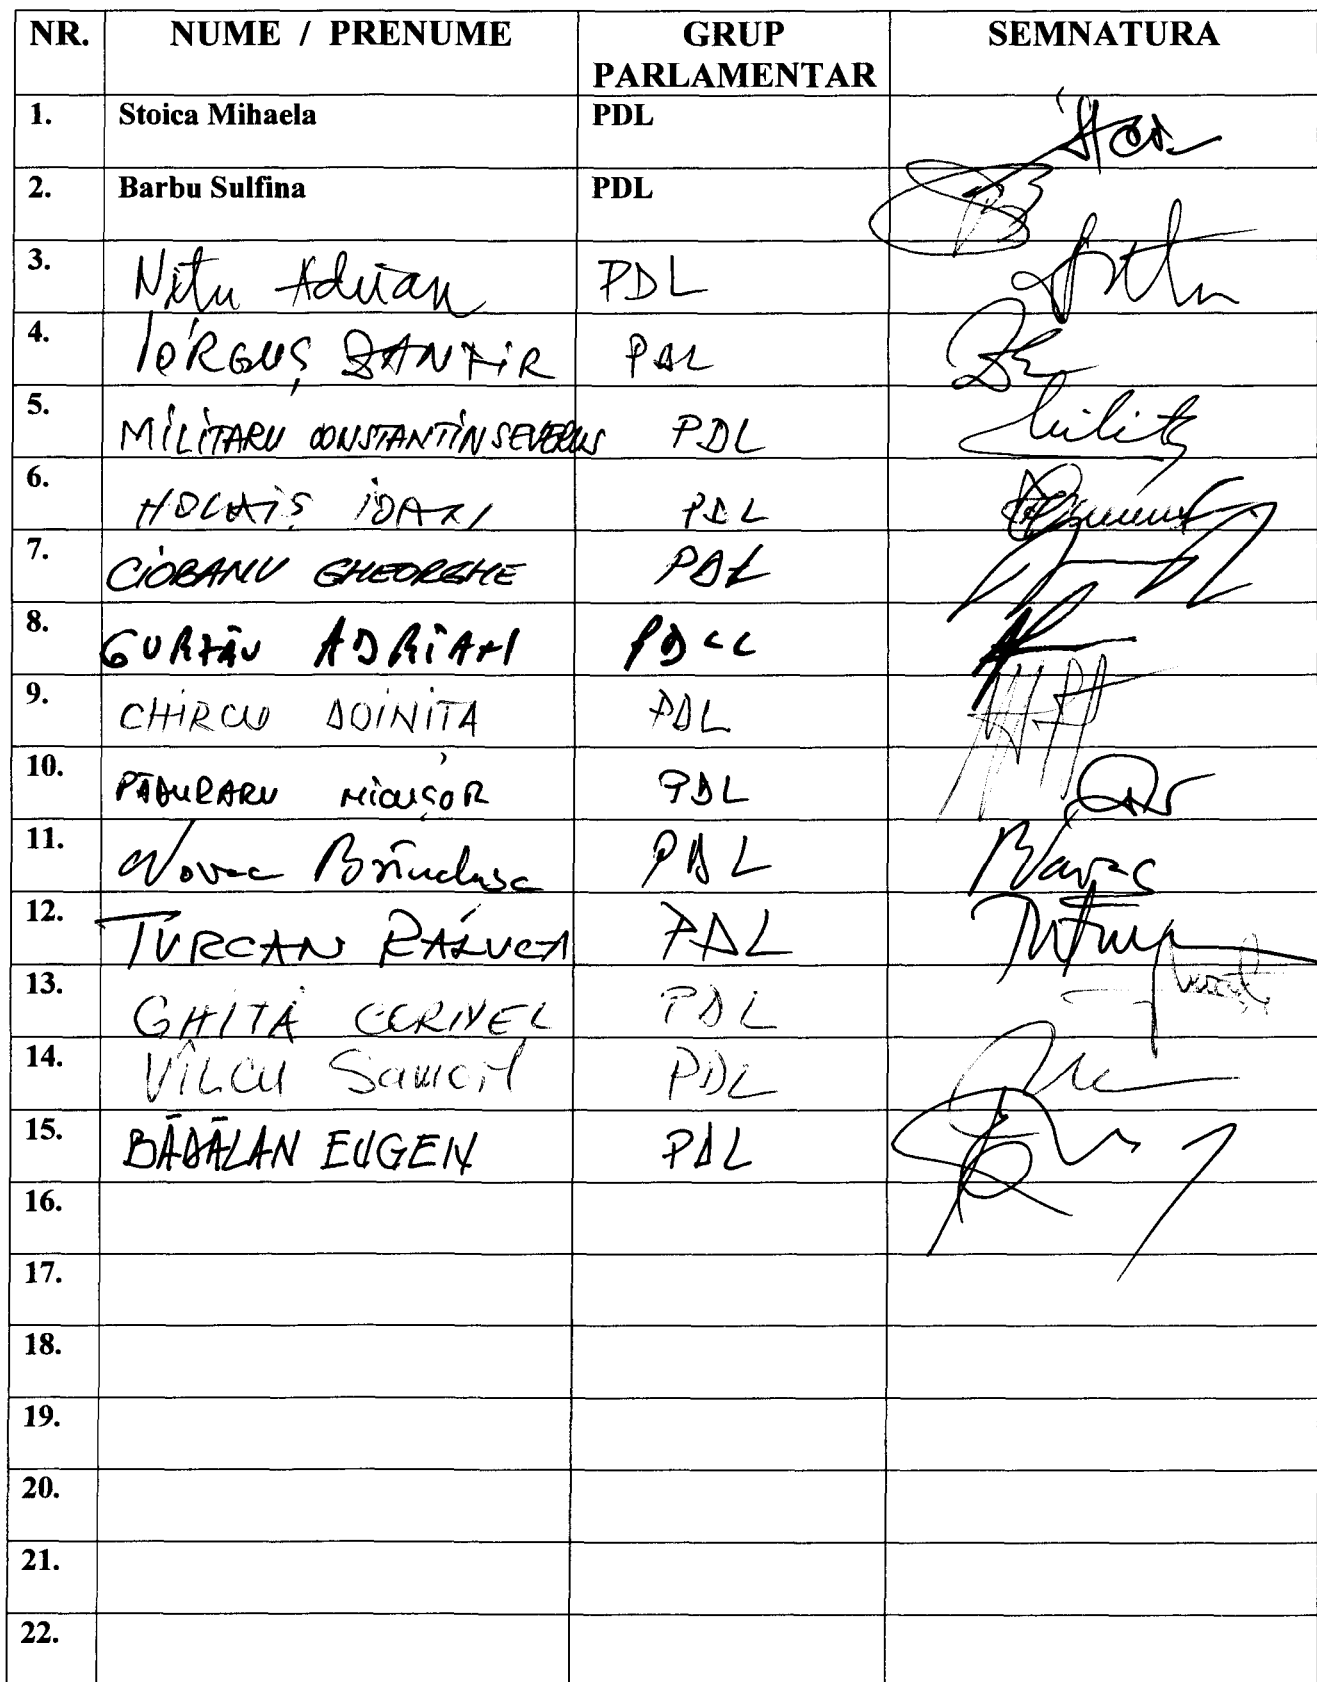 NR. NUME / PRENUME GRUP PARLAMENTAR SEMNATURA
1. Stoica Mihaela PDL
2. Barbu Sulfina PDL
3. Nitu Adrian PDL
4. IORGUȘ ZANFIR PDL
5. MILITARU CONSTANTIN SEVERUS PDL
6. PDL
7. CIOBANU GHEORGHE PDL
8. GURZĂU ADRIAN PD
9. CHIRCU DOINIȚA PDL
10. PĂDURARU NICUȘOR PDL
11. Novac Brîndușa PDL
12. TURCAN RALUCA PDL
13. GHIȚĂ CORNEL PDL
14. VÎLCU Samoil PDL
15. BĂDĂLAN EUGEN PDL
16.
17.
18.
19.
20.
21.
22.